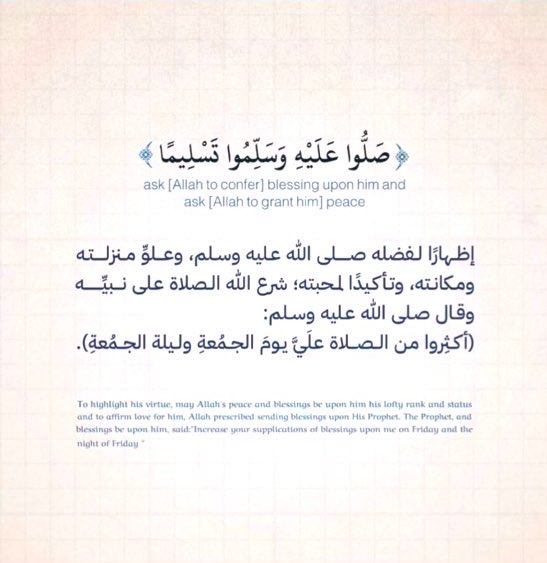 ﴿ صَلُّوا عَلَيْهِ وَسَلِّمُوا تَسْلِيمًا ﴾
ask [Allah to confer] blessing upon him and
ask [Allah to grant him] peace
إظهارًا لفضله صلى الله عليه وسلم، وعلوِّ منزلته
ومكانته، وتأكيدًا لمحبته؛ شرع الله الصلاة على نبيِّه
وقال صلى الله عليه وسلم:
(أكثِروا من الصلاة علَيَّ يومَ الجمُعةِ وليلة الجمُعةِ).
To highlight his virtue, may Allah's peace and blessings be upon him his lofty rank and status
and to affirm love for him, Allah prescribed sending blessings upon His Prophet. The Prophet, and
blessings be upon him, said:"Increase your supplications of blessings upon me on Friday and the
night of Friday "